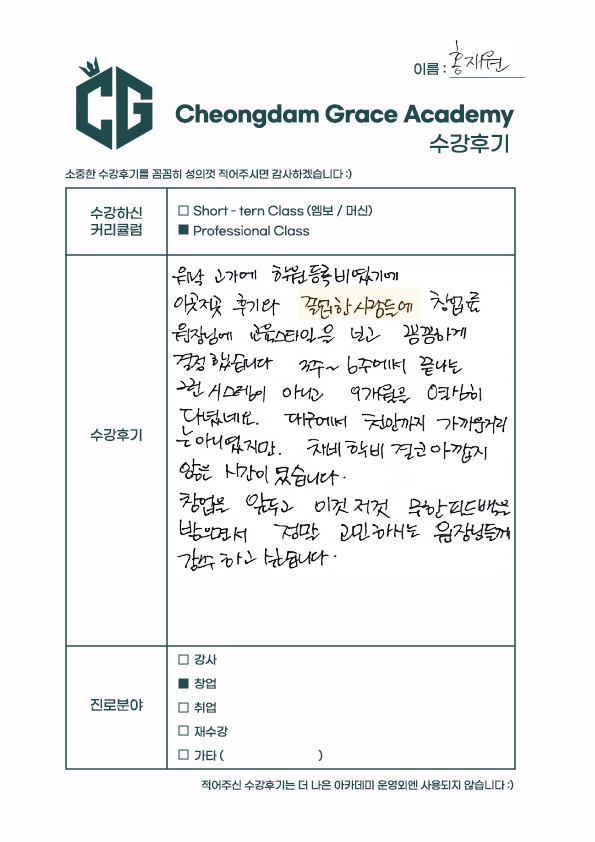 이름 : 홍재원
CG
Cheongdam Grace Academy
수강후기
소중한 수강후기를 꼼꼼히 성의껏 적어주시면 감사하겠습니다 :)
수강하신
커리큘럼
□ Short - tern Class (엠보 / 머신)
■ Professional Class
수강후기
워낙 고가에 학원등록비였기에
이곳저곳 후기와 졸업한사람들에 창업률
원장님에 교육스타일을 보고 꼼꼼하게
결정했습니다 3주~6주에서 끝나는
그런 시스템이 아니고 9개월을 열심히
다녔네요. 대구에서 천안까지 가까운거리
는아니였지만. 차비 학비 결코아깝지
않은 시간이 됬습니다.
창업을 앞두고 이것저것 무한피드백을
받으면서 정말 고민하시는 원장님들께
강추하고 싶습니다.
진로분야
□ 강사
■ 창업
□ 취업
□ 재수강
□ 가타 ( )
적어주신 수강후기는 더 나은 아카데미 운영외엔 사용되지 않습니다 :)